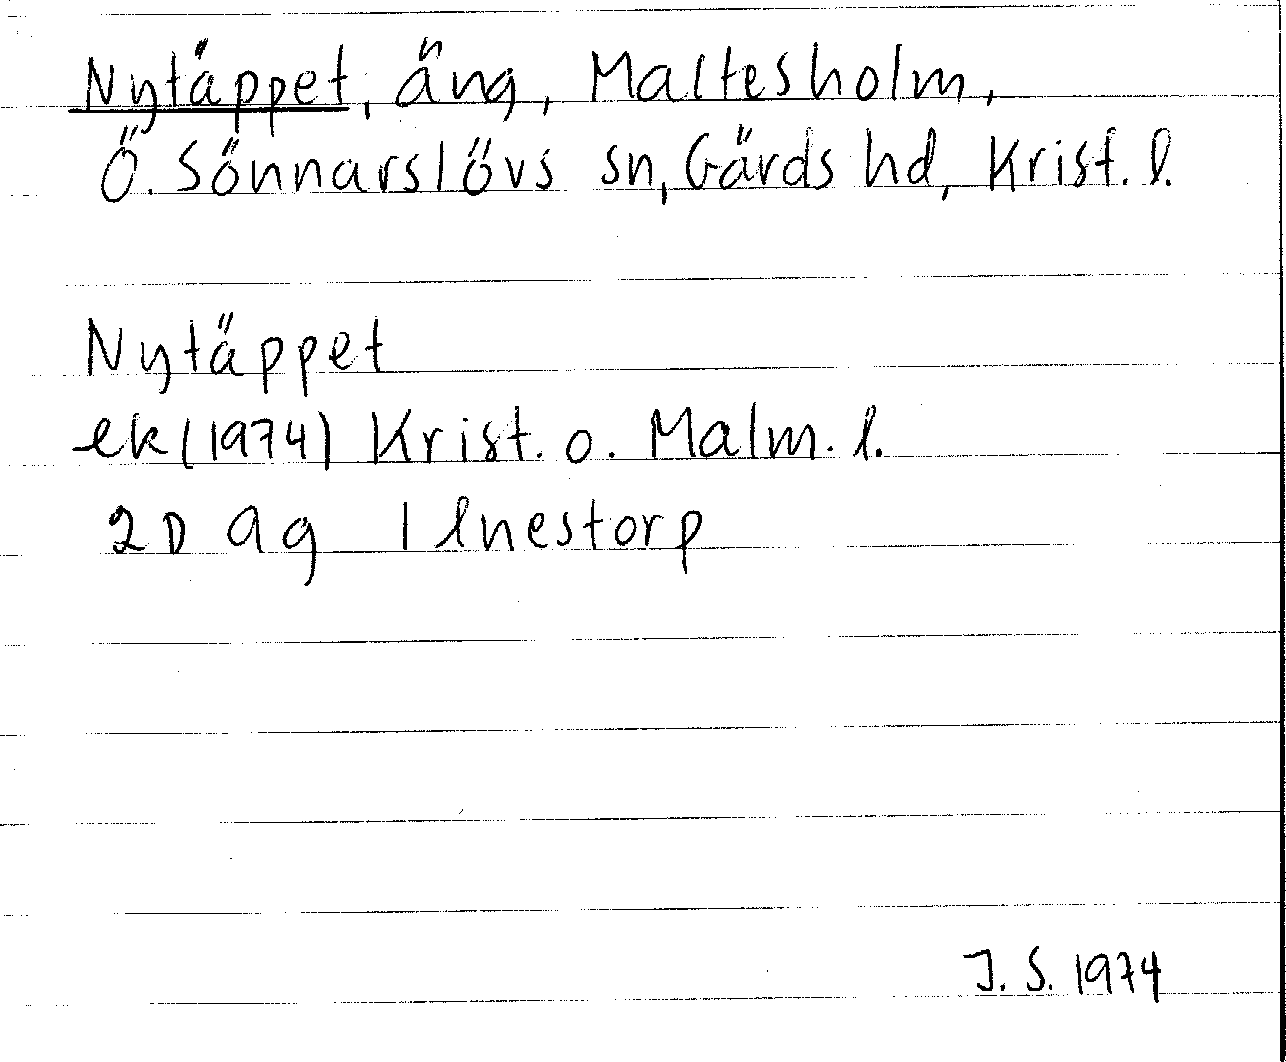 Nytäppet, äng, Maltesholm,
Ö. Sönnarslövs sn, Gärds hd, Krist. l.
Nytäppet
ek (1974) Krist. o. Malm. l.
2D 9g Ilnestorp
J. S. 1974